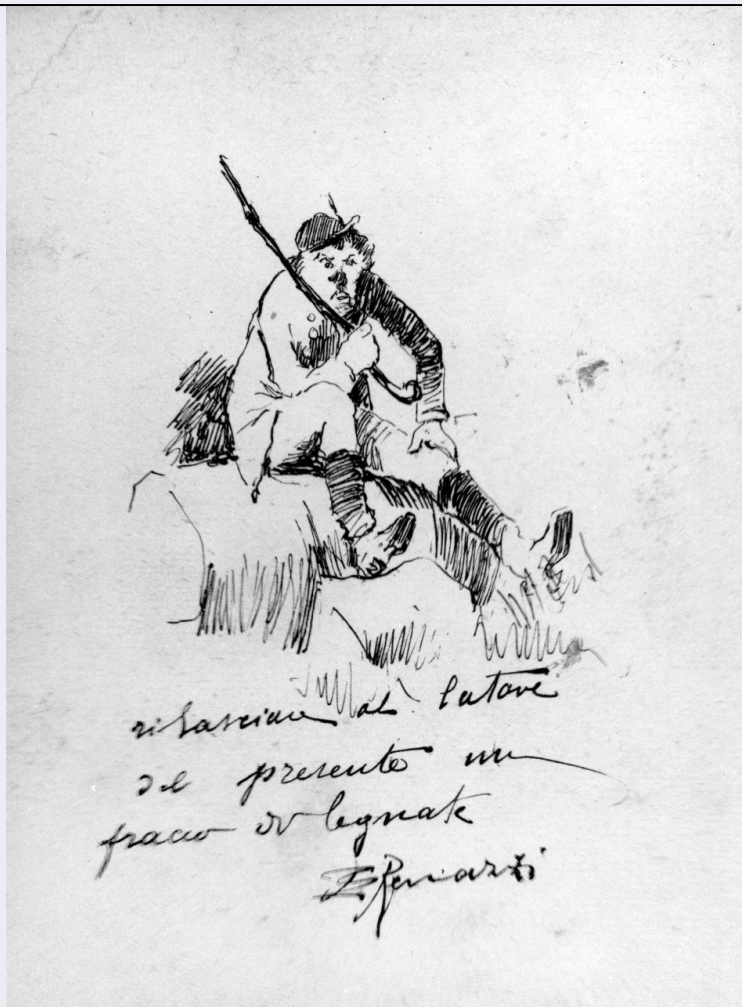 rilasciare al latore
del presente un
fracco di legnate